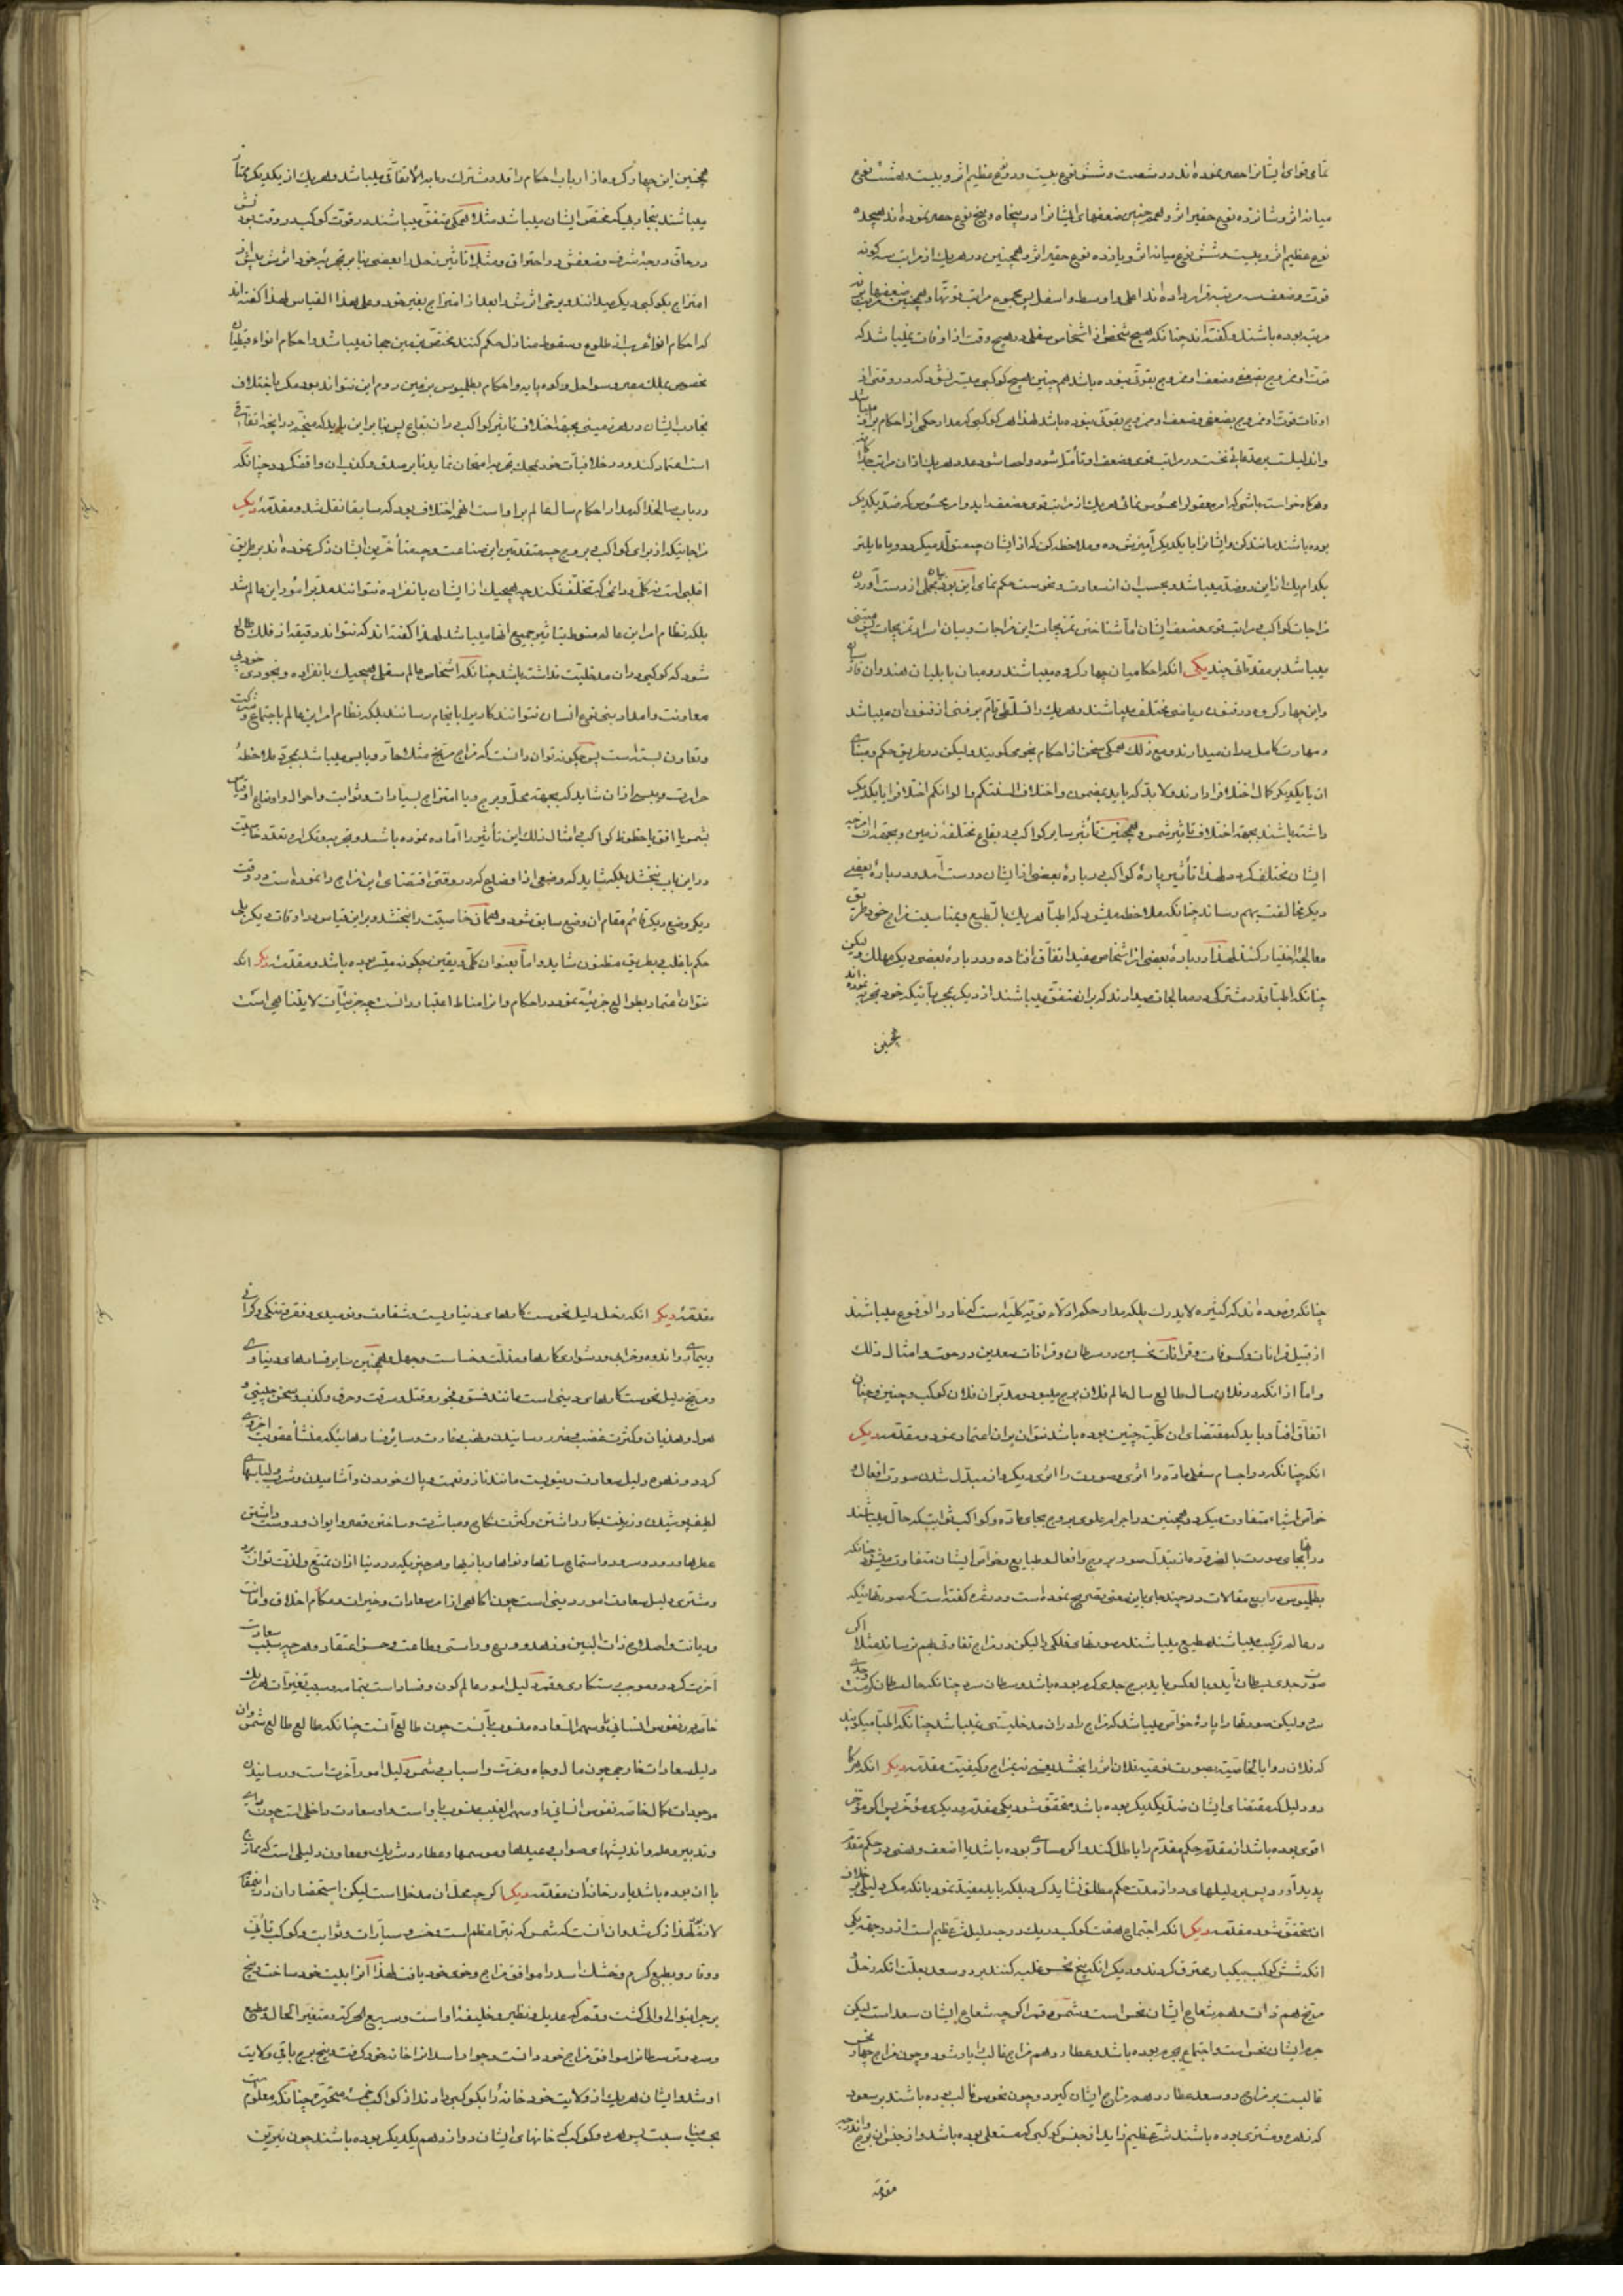 تمامی قوای ایشانرا حصر نموده‌اند در شصت و شش نوع بیست و دو نوع عظیم اثر و بیست و هشت نوع
میانه اثر و شانزده نوع حقیر اثر و همچنین ضعفهای ایشانرا در پنجاه و پنج نوع حصر نموده‌اند هیجده
نوع عظیم اثر و بیست و شش نوع میانه اثر و یازده نوع حقیر اثر و همچنین در هر یک از مراتب سه گونه
قوت و ضعف سه مرتبه قرار داده‌اند اعلی و اوسط و اسفل پس مجموع مراتب قوتها و همچنین ضعفها
مرتبه بوده باشند و گفته‌اند چنانکه هیچ شخصی از اشخاص سفلی در هیچ وقت از اوقات نمیباشد که
قوت او ممزوج بضعفی و ضعف او ممزوج بقوتی نبوده باشد همچنین هیچ کوکبی میسر نشود که در وقتی از
اوقات قوت او ممزوج بضعفی و ضعف او ممزوج بقوتی نبوده باشد لهذا هر کوکبی که مدار حکمی از احکام بر او میباشد
باید نخست در مراتب قوی و ضعف او تأمل شود و احصا شود عدد هر یک از آن مراتب
و هرگاه خواسته باشی که امر معقول را محسوس نمائی هر یک از مراتب قوی و ضعف را بدو امر محسوس که ضد یکدیگر
بوده باشند مانند کن و ایشانرا با یکدیگر آمیزش ده و ملاحظه کن که از ایشان چه متولد میگردد و یا مایلتر
بکدام یک از این دو ضد میباشد و بحسب آن از سعادت و نحوست حکم نمای این بود مجملی از دست آوردن
مزاجات کواکب و مراتب قوی و ضعف ایشان اما شناختن تمزیجات این مزاجات و بیان اسرار تمزیجات پس مبتنی
میباشد بر مقدماتی چند یکی آنکه احکامیان چهار گروه میباشند رومیان بابلیان هندوان فارسیان
و این چهار گروه در فنون ریاضی مختلف میباشند و هر یک را تسلطی تام بر فنی از فنون آن میباشد
و مهارت کامل در آن میدارند و مع ذلک همگی سخن از احکام نجومی گویند و لیکن در طریق حکم و مبنای
آن با یکدیگر کمال اختلاف را دارند و لابد که باید بمضمون و اختلاف السنتکم و الوانکم اختلاف را با یکدیگر
داشته باشند بجهة اختلاف تاثیر شمس و همچنین تأثیر سایر کواکب در بقاع مختلفه زمین و بجهة آن امزجه
ایشان مختلف گردد لهذا تأثیر پارهٔ کواکب در بارهٔ بعضی از ایشان درست آمد و در بارهٔ بعضی
دیگر مخالفت بهم رساند چنانکه ملاحظه میشود که اطبا هر یک بالطبع و بمناسبت مزاج خود طریق
معالجه اختیار کنند لهذا در بارهٔ بعضی از اشخاص مفید اتفاق افتاده و در بارهٔ بعضی دیگر مهلک و لیکن
چنانکه اطبا قدر مشترکی در معالجات میدارند که بر آن متفق میباشند از دیگر تجربیاتیکه خود تجربه نموده‌اند
همچنین
همچنین این چهار گروه از ارباب احکام را قدر مشترک و ما به الاتفاقی میباشد و هر یک از یکدیگر ممتاز
میباشند بتجاربی که مختص ایشان میباشد مثلا همگی متفق میباشند در قوت کوکب در وقت بودنش
در حاق درجهٔ شرف و ضعفش در احتراق و مثلا تاثیر زحل را بعضی بنا بر تجربهٔ خود اثرش پیش از
امتزاج بکوکبی دیگر میدانند و برخی اثرش را بعد از امتزاج بغیر خود و علی هذا القیاس لهذا گفته‌اند
که احکام انواء عرب از طلوع و سقوط منازل حکم کنند مختص بزمین حجاز میباشد و احکام انواء قبطیان
مخصوص بملک مصر و سواحل و کوه پایه و احکام بطلیموس بزمین روم این نتواند بود مگر باختلاف
تجارب ایشان در هر زمینی بجهة اختلاف تاثیر کواکب در آن بقاع پس بنا بر این باید که منجم در آنچه اتفاقی
است اعتماد کند و در خلافیات خود بمحک تجربه امتحان نماید تا بر صدق و کذب آن واقف گردد چنانکه
در باب سالخدا که مدار احکام سال عالم بر او است آنهمه اختلاف بود که سابقا نقل شد و مقدمهٔ دیگر
مزاجاتیکه از برای کواکب و بروج چه متقدمین این صناعت و چه متأخرین ایشان ذکر نموده‌اند بر طریق
اغلبی است نه کلی و دائمی که تخلف نکند چه هیچیک از ایشان بانفراده نتوانند مدبر امور این عالم شد
بلکه نظام امر این عالم منوط بتاثیر جمیع آنها میباشد لهذا گفته‌اند که نتواند دقیقه از فلک طالع
شود که کوکبی در آن مدخلیت نداشته باشد چنانکه اشخاص عالم سفلی هیچیک بانفراده و بخودی خود بی
معاونت و امداد بنی نوع انسان نتوانند کاریرا بانجام رسانند بلکه نظام امر این عالم باجتماع و شرکت
و تعاون بسته است پس چگونه توان دانست که مزاج مریخ مثلا حار و یابس میباشد بمجرد ملاحظهٔ
حرارت و یبس از آن شاید که بجهة محل و برج و یا امتزاج بسیارات و ثوابت و احوال و اوضاع او قیاس
بشمس یا افق یا حظوظ کواکب و امثال ذلک این تأثیر را آماده نموده باشند و تجربه و تکرار مفید خاصیت
در این باب نبخشد بلکه شاید که وضعی از اوضاع که در وقتی اقتضای این مزاج را نموده است در وقت
دیگر وضع دیگر قائم مقام آن وضع سابق شود و همان خاصیت را بخشد و بر این قیاس در اوقات دیگر بلی
حکم باغلب و بطریق مظنون شاید و اما بعنوان کلی و یقین چگونه میسر بوده باشد و مقدمهٔ دیگر آنکه
نتوان اعتماد بطوالع جزئیه نمود در احکام و آنرا مناط اعتبار دانست چه جزئیات لایتناهی است
چنانکه فرموده‌اند که کثیره لایدرک بلکه مدار حکم بر ادلاء قویه کلیه است که نادر الوقوع میباشند
از قبیل قرانات و کسوفات و قرانات نحسین در سرطان و قرانات سعدین در حوت و امثال ذلک
و اما از آنکه در فلان سال طالع سال عالم فلان برج میبود و مدبر آن فلان کوکب و چنین و چنان
اتفاق افتاد باید که مقتضای آن کلیة چنین بوده باشد نتوان بر آن اعتماد نمود و مقدمه دیگر
آنکه چنانکه در اجسام سفلی ماده را اثری و صورت را اثری دیگر و از مبدل شدن صورت افعال و
خواص اشیاء متفاوت میگردد همچنین در اجرام علوی بروج بجای ماده و کواکب ثوابت که حال میباشند
در آنها بجای صورت بالضرورة از تبدل صور بروج و افعال و طبایع و خواص ایشان متفاوت میشود چنانکه
بطلمیوس در رابع مقالات در چند جای باین معنی تصریح نموده است و در ثمره گفته است که صورتهائیکه
در عالم ترکیب میباشند مطیع میباشند بصورتهای فلکی را لیکن در مزاج تفاوتی بهم نرساند مثلا اگر
صورت جدی بسرطان آید و یا بالعکس باید برج جدی گرم بوده باشد و سرطان سرد چنانکه حال سرطان گرمست و جدی
سرد و لیکن صورتها را پارهٔ خواص میباشد که مزاج را در آن مدخلیتی نمیباشد چنانکه اطبا میگویند
که فلان دوا بالخاصیت و بصورت نوعیه فلان اثر را بخشد یعنی نه بمزاج و کیفیت مقدمه دیگر آنکه هرگاه
دو دلیل که مقتضای ایشان ضد یکدیگر بوده باشد متحقق شود یکی مقدم و دیگری مؤخر پس اگر مؤخر
اقوی بوده باشد از مقدم حکم مقدم را باطل کند و اگر مساوی بوده باشد یا اضعف وهنی در حکم مقدم
پدید آورد پس بر دلیلهای دراز مدت حکم مطلق نشاید کرد بلکه باید مقید نمود بآنکه مگر دلیلی بر خلاف
آن متحقق شود مقدمه دیگر آنکه اجتماع هفت کوکب در یک درجه دلیل شر عظیم است از دو جهة یکی
آنکه شش کوکب بیکبار محترق گردند و دیگر آنکه پنج نحس غلبه کنند بر دو سعد بعلت آنکه زحل و
مریخ هم ذات و هم شعاع ایشان نحس است و شمس و قمر اگر چه شعاع ایشان سعد است لیکن
جرم ایشان نحس است و اجتماع بجرم بوده باشد و عطارد هم مزاج غالب را یار شود و چون مزاج چهار نحس
غالبست بر مزاج دو سعد عطارد هم مزاج ایشان گیرد و چون نحوس غالب بوده باشند بر سعود
که زهره و مشتری بوده باشند شر عظیم زاید از جنس کوکبی که مستعلی بوده باشد و از جنس آن برج و آن درجه
مقدمه
مقدمهٔ دیگر آنکه زحل دلیل نحوست کارهای دنیاویست و شقاوت و نومیدی و فقر و تنگی و گرانی
و بیماری و اندوه و خرابی و دشواری کارها و مذلت و خساست و جهل و همچنین سایر فسادهای دنیاوی
و مریخ دلیل نحوست کارهای دینی است مانند فسق و فجور و قتل و سرقت و حرق و کذب و سخن چینی و
هوا و هذیان و کثرت غضب و ضرر رسانیدن و نهب و غارت و سایر فسادهائیکه منشأ عقوبت اخروی
گردد و زهره دلیل سعادت دنیویست مانند ناز و نعمت و پاک خوردن و آشامیدن و شرب و لباسهای
لطیف پوشیدن و زینت بکار داشتن و کثرت نکاح و مباشرت و ساختن قصر و ایوان و دوست داشتن
عطرها و رود و سرود و استماع سازها و نواها و بازیها و هر چیزیکه در دنیا از آن تمتع و لذت توان برد
و مشتری دلیل سعادت امور دینی است چون آگاهی از اسرار سعادات و خیرات و مکارم اخلاق و امانت
و دیانت و اصلاح ذات البین و زهد و ورع و راستی و طاعت و حسن اعتقاد و هر چه سبب سعادت
آخرت گردد و موجب رستگاری و قمر دلیل امور عالم کون و فساد است بتمامه و سبب تغیرات هر یک
خاصه در نفوس انسانی و سهم السعاده منسوب باوست چون طالع آنست چنانکه طالع طالع شمس و آن
دلیل سعادات خارجی چون مال و جاه و عزت و اسباب و شمس دلیل امور آخرت است و رسانیدن
موجودات بکمال خاصه نفوس انسانی را و سهم الغیب منسوب باو است و او سعادت داخلی است چون رای
و تدبیر و علم و اندیشهای صواب و عیدها و موسمها و عطارد شریک و معاون دلیلی است که ممازج
با آن بوده باشد یا در خانهٔ آن مقدمه دیگر اگر چه محل آن مدخل است لیکن استحضار آن در اینمقام
لازم بود لهذا ذکر شد و آن آنست که شمس که نیر اعظم است و خسرو سیارات و ثوابت و کوکب تأنی
و وقار و بطبع گرم و خشک اسد را موافق مزاج و خوی خود یافت لهذا آنرا بیت خود ساخت و پنج
برج را بتوالی والی گشت و قمر که عدیل و نظیر و خلیفهٔ او است و سریع الحرکة و متغیر الحال و بطبع
سرد و تر سرطانرا موافق مزاج خود دانست و جوار اسد از خانهٔ خود گرفت و پنج برج باقی ولایت
او شد و ایشان هر یک از ولایت خود خانهٔ را بکوکبی دادند از کواکب خمسهٔ متحیره چنانکه معلوم
بحسب مناسبت پس هر دو کوکب که خانهای ایشان دوازدهم یکدیگر بوده باشند چون نیرین